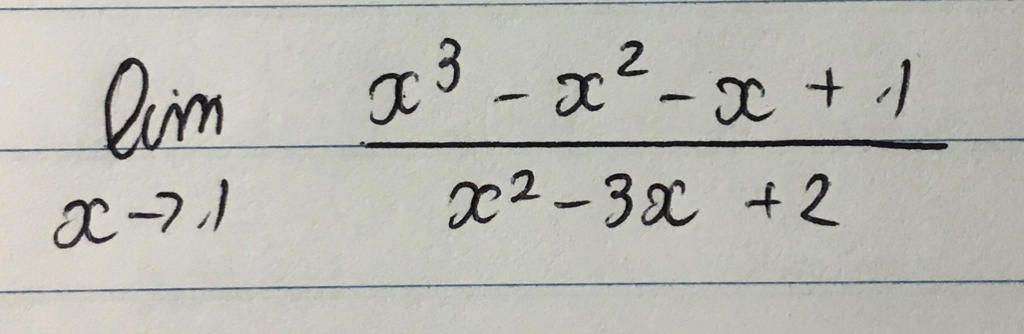 lim x³ - x² - x + 1
x → 1 x² - 3x + 2